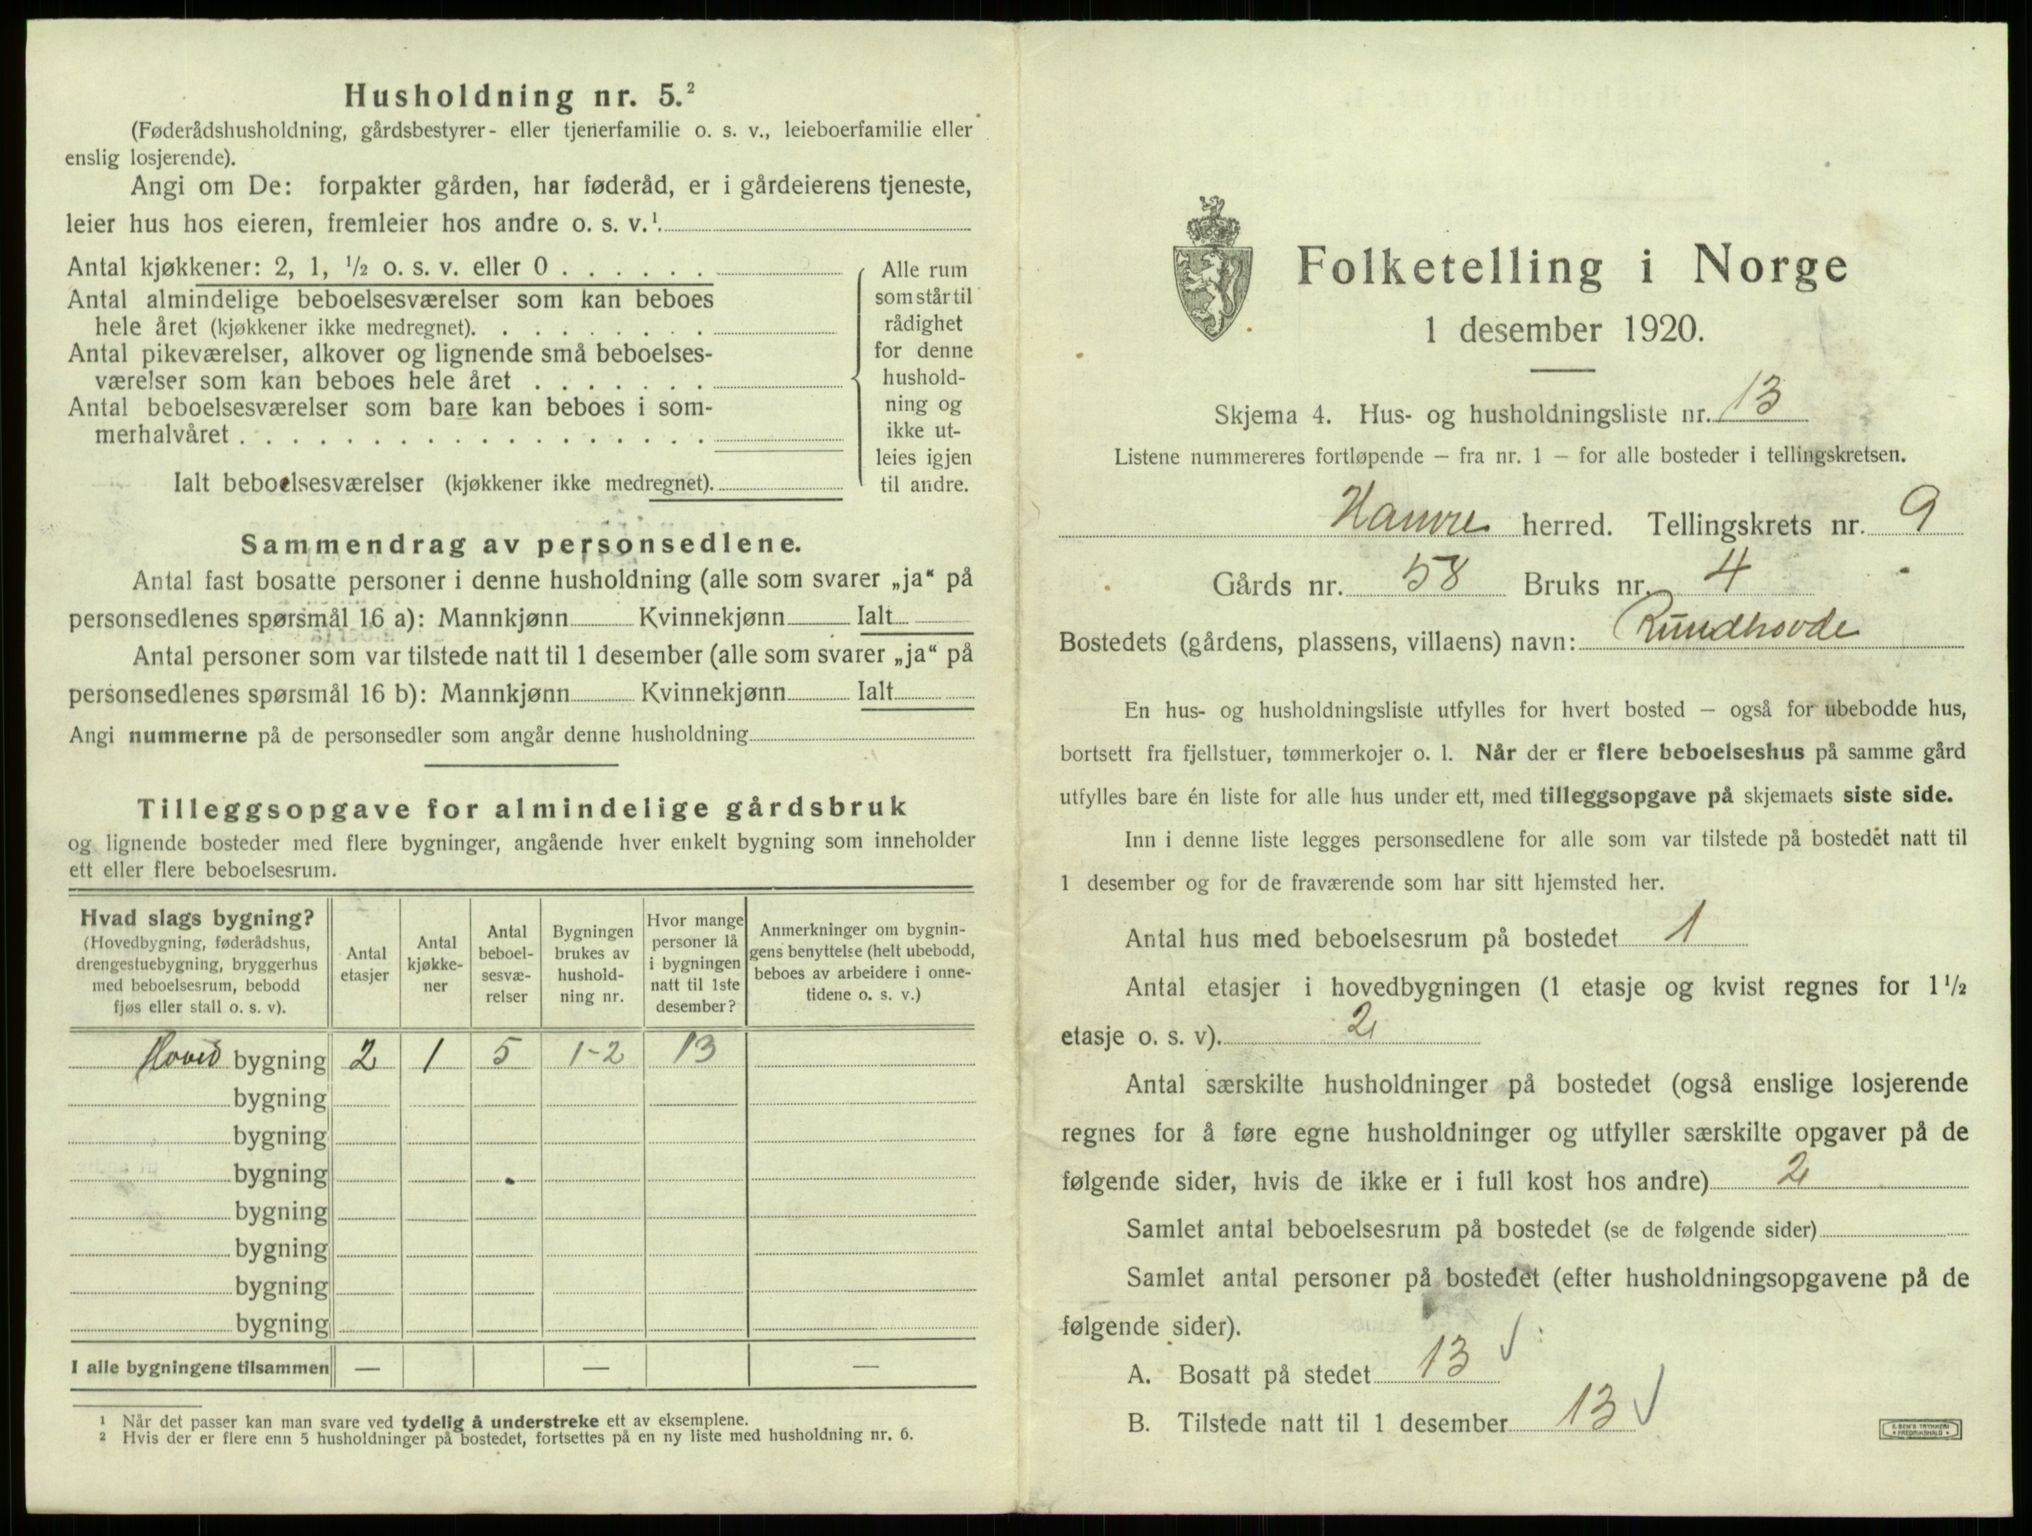 Husholdning nr. 5.²
(Føderådshusholdning, gårdsbestyrer- eller tjenerfamilie o. s. v., leieboerfamilie eller
enslig losjerende).
Angi om De: forpakter gården, har føderåd, er i gårdeierens tjeneste,
leier hus hos eieren, fremleier hos andre o. s. v.¹
Antal kjøkkener: 2, 1, ½ o. s. v. eller 0 . . . . . .
Antal almindelige beboelsesværelser som kan beboes
hele året (kjøkkener ikke medregnet). . . . . . . . .
Antal pikeværelser, alkover og lignende små beboelses-
værelser som kan beboes hele året . . . . . . .
Antal beboelsesværelser som bare kan beboes i som-
merhalvåret . . . . . . . . . . . . . . . . . .
Ialt beboelsesværelser (kjøkkener ikke medregnet).
Alle rum
som står til
rådighet
for denne
hushold-
ning og
ikke ut-
leies igjen
til andre.
Sammendrag av personsedlene.
Antal fast bosatte personer i denne husholdning (alle som svarer „ja“ på
personsedlenes spørsmål 16 a): Mannkjønn Kvinnekjønn Ialt
Antal personer som var tilstede natt til 1 desember (alle som svarer „ja“ på
personsedlenes spørsmål 16 b): Mannkjønn Kvinnekjønn Ialt
Angi nummerne på de personsedler som angår denne husholdning
Tilleggsopgave for almindelige gårdsbruk
og lignende bosteder med flere bygninger, angående hver enkelt bygning som inneholder
ett eller flere beboelsesrum.
Hvad slags bygning?
(Hovedbygning, føderådshus,
drengestuebygning, bryggerhus
med beboelsesrum, bebodd
fjøs eller stall o. s. v).
Antal
etasjer
Antal
kjøkke-
ner
Antal
beboel-
sesvæ-
relser
Bygningen
brukes av
hushold-
ning nr.
Hvor mange
personer lå
i bygningen
natt til 1ste
desember?
Anmerkninger om bygnin-
gens benyttelse (helt ubebodd,
beboes av arbeidere i onne-
tidene o. s. v.)
Hoved bygning 2 1 5 1-2 13
bygning
bygning
bygning
bygning
bygning
bygning
bygning
I alle bygningene tilsammen — — —
¹ Når det passer kan man svare ved tydelig å understreke ett av eksemplene.
² Hvis der er flere enn 5 husholdninger på bostedet, fortsettes på en ny liste med husholdning nr. 6.
Folketelling i Norge
1 desember 1920.
Skjema 4. Hus- og husholdningsliste nr. 13
Listene nummereres fortløpende – fra nr. 1 – for alle bosteder i tellingskretsen.
Hamre herred. Tellingskrets nr. 9
Gårds nr. 58 Bruks nr. 4
Bostedets (gårdens, plassens, villaens) navn: Rundhovde
En hus- og husholdningsliste utfylles for hvert bosted – også for ubebodde hus,
bortsett fra fjellstuer, tømmerkojer o. l. Når der er flere beboelseshus på samme gård
utfylles bare én liste for alle hus under ett, med tilleggsopgave på skjemaets siste side.
Inn i denne liste legges personsedlene for alle som var tilstede på bostedet natt til
1 desember og for de fraværende som har sitt hjemsted her.
Antal hus med beboelsesrum på bostedet 1
Antal etasjer i hovedbygningen (1 etasje og kvist regnes for 1 ½
etasje o. s. v). 2
Antal særskilte husholdninger på bostedet (også enslige losjerende
regnes for å føre egne husholdninger og utfyller særskilte opgaver på de
følgende sider, hvis de ikke er i full kost hos andre) 2
Samlet antal beboelsesrum på bostedet (se de følgende sider)
Samlet antal personer på bostedet (efter husholdningsopgavene på de
følgende sider).
A. Bosatt på stedet 13 √
B. Tilstede natt til 1 desember 13 √